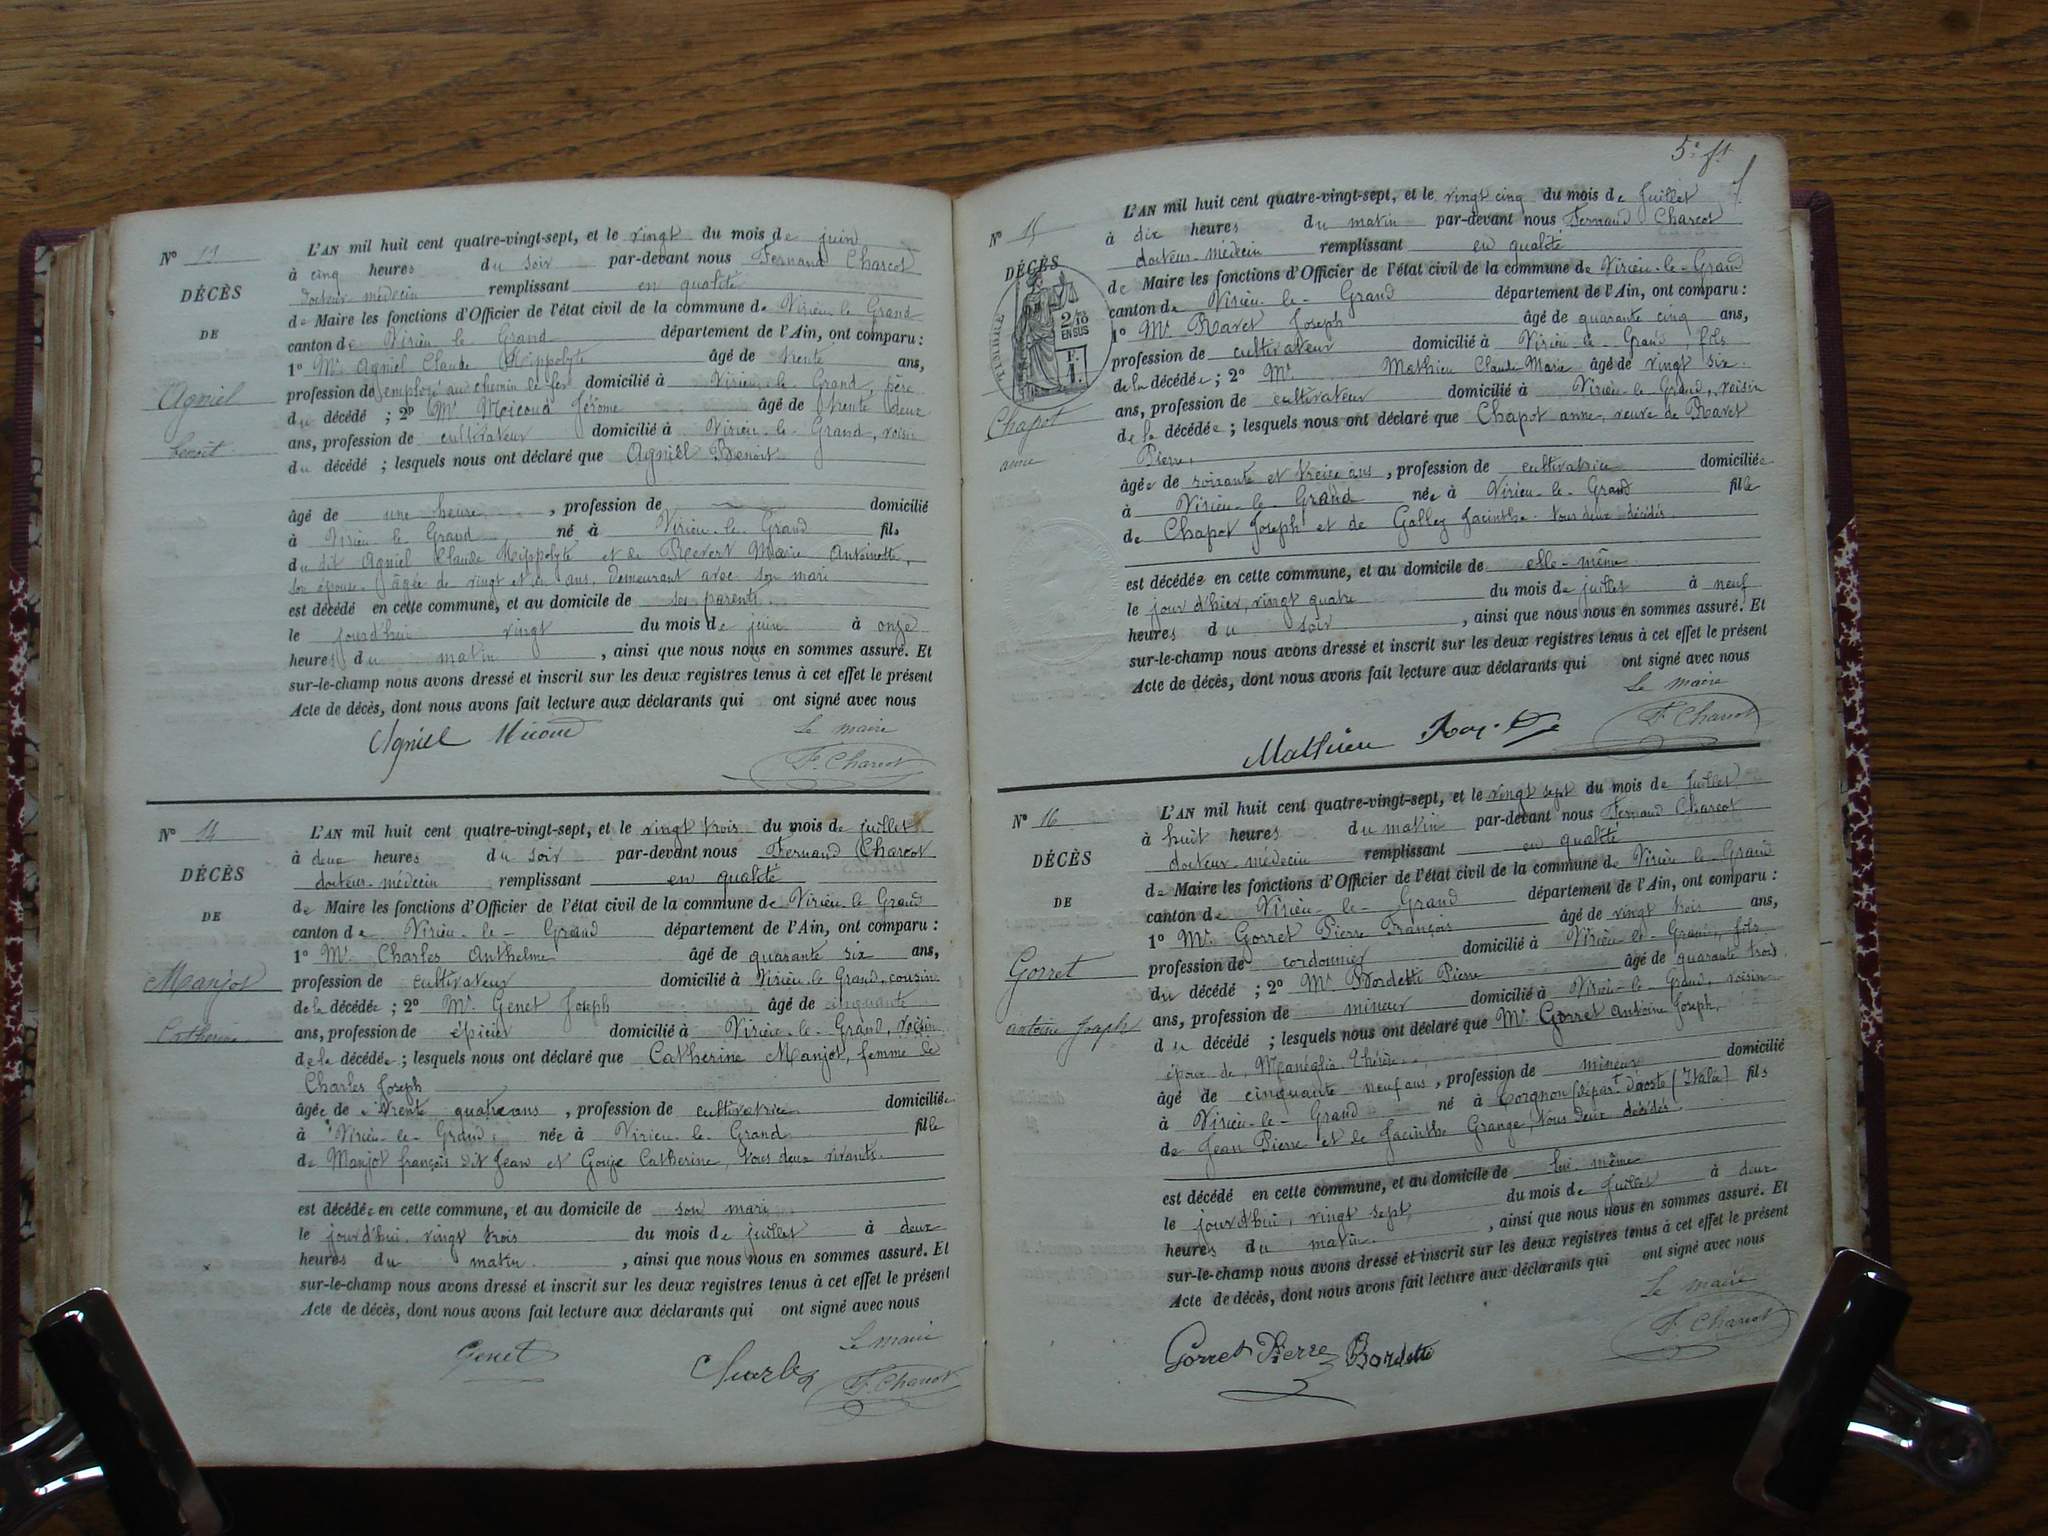 N° 13
DÉCÈS
DE
Agniel
benoît
L'AN mil huit cent quatre-vingt-sept, et le vingt du mois de juin
à cinq heures du soir par-devant nous Fernand Charcot
docteur-médecin remplissant en qualité
de Maire les fonctions d'Officier de l'état civil de la commune de Virieu le Grand
canton de Virieu le Grand département de l'Ain, ont comparu :
1° Mr Agniel Claude Hippolyte âgé de trente ans,
profession de employé au chemin de fer domicilié à Virieu-le-Grand, père
du décédé ; 2° Mr Jérôme âgé de trente deux
ans, profession de cultivateur domicilié à Virieu-le-Grand, voisin
du décédé ; lesquels nous ont déclaré que Agniel Benoit
âgé de une heure, profession de domicilié
à Virieu le Grand né à Virieu-le-Grand fils
du dit Agniel Claude Hippolyte et de Marie Antoinette,
son épouse, âgée de vingt et un ans, demeurant avec son mari
est décédé en cette commune, et au domicile de ses parents
le jourd'hui vingt du mois de juin à onze
heures du matin, ainsi que nous nous en sommes assuré. Et
sur-le-champ nous avons dressé et inscrit sur les deux registres tenus à cet effet le présent
Acte de décès, dont nous avons fait lecture aux déclarants qui ont signé avec nous
Le maire
Agniel
F. Charcot
N° 14
DÉCÈS
DE
Manjot
Catherine
L'AN mil huit cent quatre-vingt-sept, et le vingt trois du mois de juillet
à deux heures du soir par-devant nous Fernand Charcot
docteur-médecin remplissant en qualité
de Maire les fonctions d'Officier de l'état civil de la commune de Virieu-le-Grand
canton de Virieu-le-Grand département de l'Ain, ont comparu :
1° Mr Charles Anthelme âgé de quarante six ans,
profession de cultivateur domicilié à Virieu-le-Grand, cousin
de la décédée ; 2° Mr Genet Joseph âgé de cinquante
ans, profession de épicier domicilié à Virieu-le-Grand, voisin
de la décédée ; lesquels nous ont déclaré que Catherine Manjot, femme de
Charles Joseph
âgée de trente quatre ans, profession de cultivatrice domiciliée
à Virieu-le-Grand, née à Virieu-le-Grand fille
de Manjot françois dit Jean et Gouje Catherine, tous deux vivants.
est décédée en cette commune, et au domicile de son mari
le jourd'hui, vingt trois du mois de juillet à deux
heures du matin, ainsi que nous nous en sommes assuré. Et
sur-le-champ nous avons dressé et inscrit sur les deux registres tenus à cet effet le présent
Acte de décès, dont nous avons fait lecture aux déclarants qui ont signé avec nous
Le maire
Genet Charles F. Charcot
5e ft
N° 15
DÉCÈS
TIMBRE
2/10 EN SUS
F. 1.
Chapot
anne
L'AN mil huit cent quatre-vingt-sept, et le vingt cinq du mois de juillet
à dix heures du matin par-devant nous Fernand Charcot
docteur-médecin remplissant en qualité
de Maire les fonctions d'Officier de l'état civil de la commune de Virieu-le-Grand
canton de Virieu-le-Grand département de l'Ain, ont comparu :
1° Mr Ravet Joseph âgé de quarante cinq ans,
profession de cultivateur domicilié à Virieu-le-Grand, fils
de la décédée ; 2° Mr Mathieu Claude Marie âgé de vingt six
ans, profession de cultivateur domicilié à Virieu-le-Grand, voisin
de la décédée ; lesquels nous ont déclaré que Chapot anne, veuve de Ravet
Pierre,
âgée de soixante et treize ans, profession de cultivatrice domiciliée
à Virieu-le-Grand née à Virieu-le-Grand fille
de Chapot Joseph et de Gallez Jacinthe tous deux décédés
est décédée en cette commune, et au domicile de elle-même
le jour d'hier, vingt quatre du mois de juillet à neuf
heures du soir, ainsi que nous nous en sommes assuré. Et
sur-le-champ nous avons dressé et inscrit sur les deux registres tenus à cet effet le présent
Acte de décès, dont nous avons fait lecture aux déclarants qui ont signé avec nous
Le maire
Mathieu F. Charcot
N° 16
DÉCÈS
DE
Gorret
antoine Joseph
L'AN mil huit cent quatre-vingt-sept, et le vingt sept du mois de juillet
à huit heures du matin par-devant nous Fernand Charcot
docteur-médecin remplissant en qualité
de Maire les fonctions d'Officier de l'état civil de la commune de Virieu-le-Grand
canton de Virieu-le-Grand département de l'Ain, ont comparu :
1° Mr Gorret Pierre François âgé de vingt trois ans,
profession de cordonnier domicilié à Virieu-le-Grand, fils
du décédé ; 2° Mr Bordette Pierre âgé de quarante trois
ans, profession de mineur domicilié à Virieu-le-Grand, voisin
du décédé ; lesquels nous ont déclaré que Mr Gorret Antoine Joseph,
époux de Manéglia Thérèse
âgé de cinquante neuf ans, profession de mineur domicilié
à Virieu-le-Grand né à Torgnon (départ d'aoste (Italie) fils
de Jean Pierre et de Jacinthe Grange, tous deux décédés
est décédé en cette commune, et au domicile de lui-même
le jourd'hui, vingt sept, du mois de juillet à deux
heures du matin, ainsi que nous nous en sommes assuré. Et
sur-le-champ nous avons dressé et inscrit sur les deux registres tenus à cet effet le présent
Acte de décès, dont nous avons fait lecture aux déclarants qui ont signé avec nous
Le maire
Gorret Pierre Bordette F. Charcot